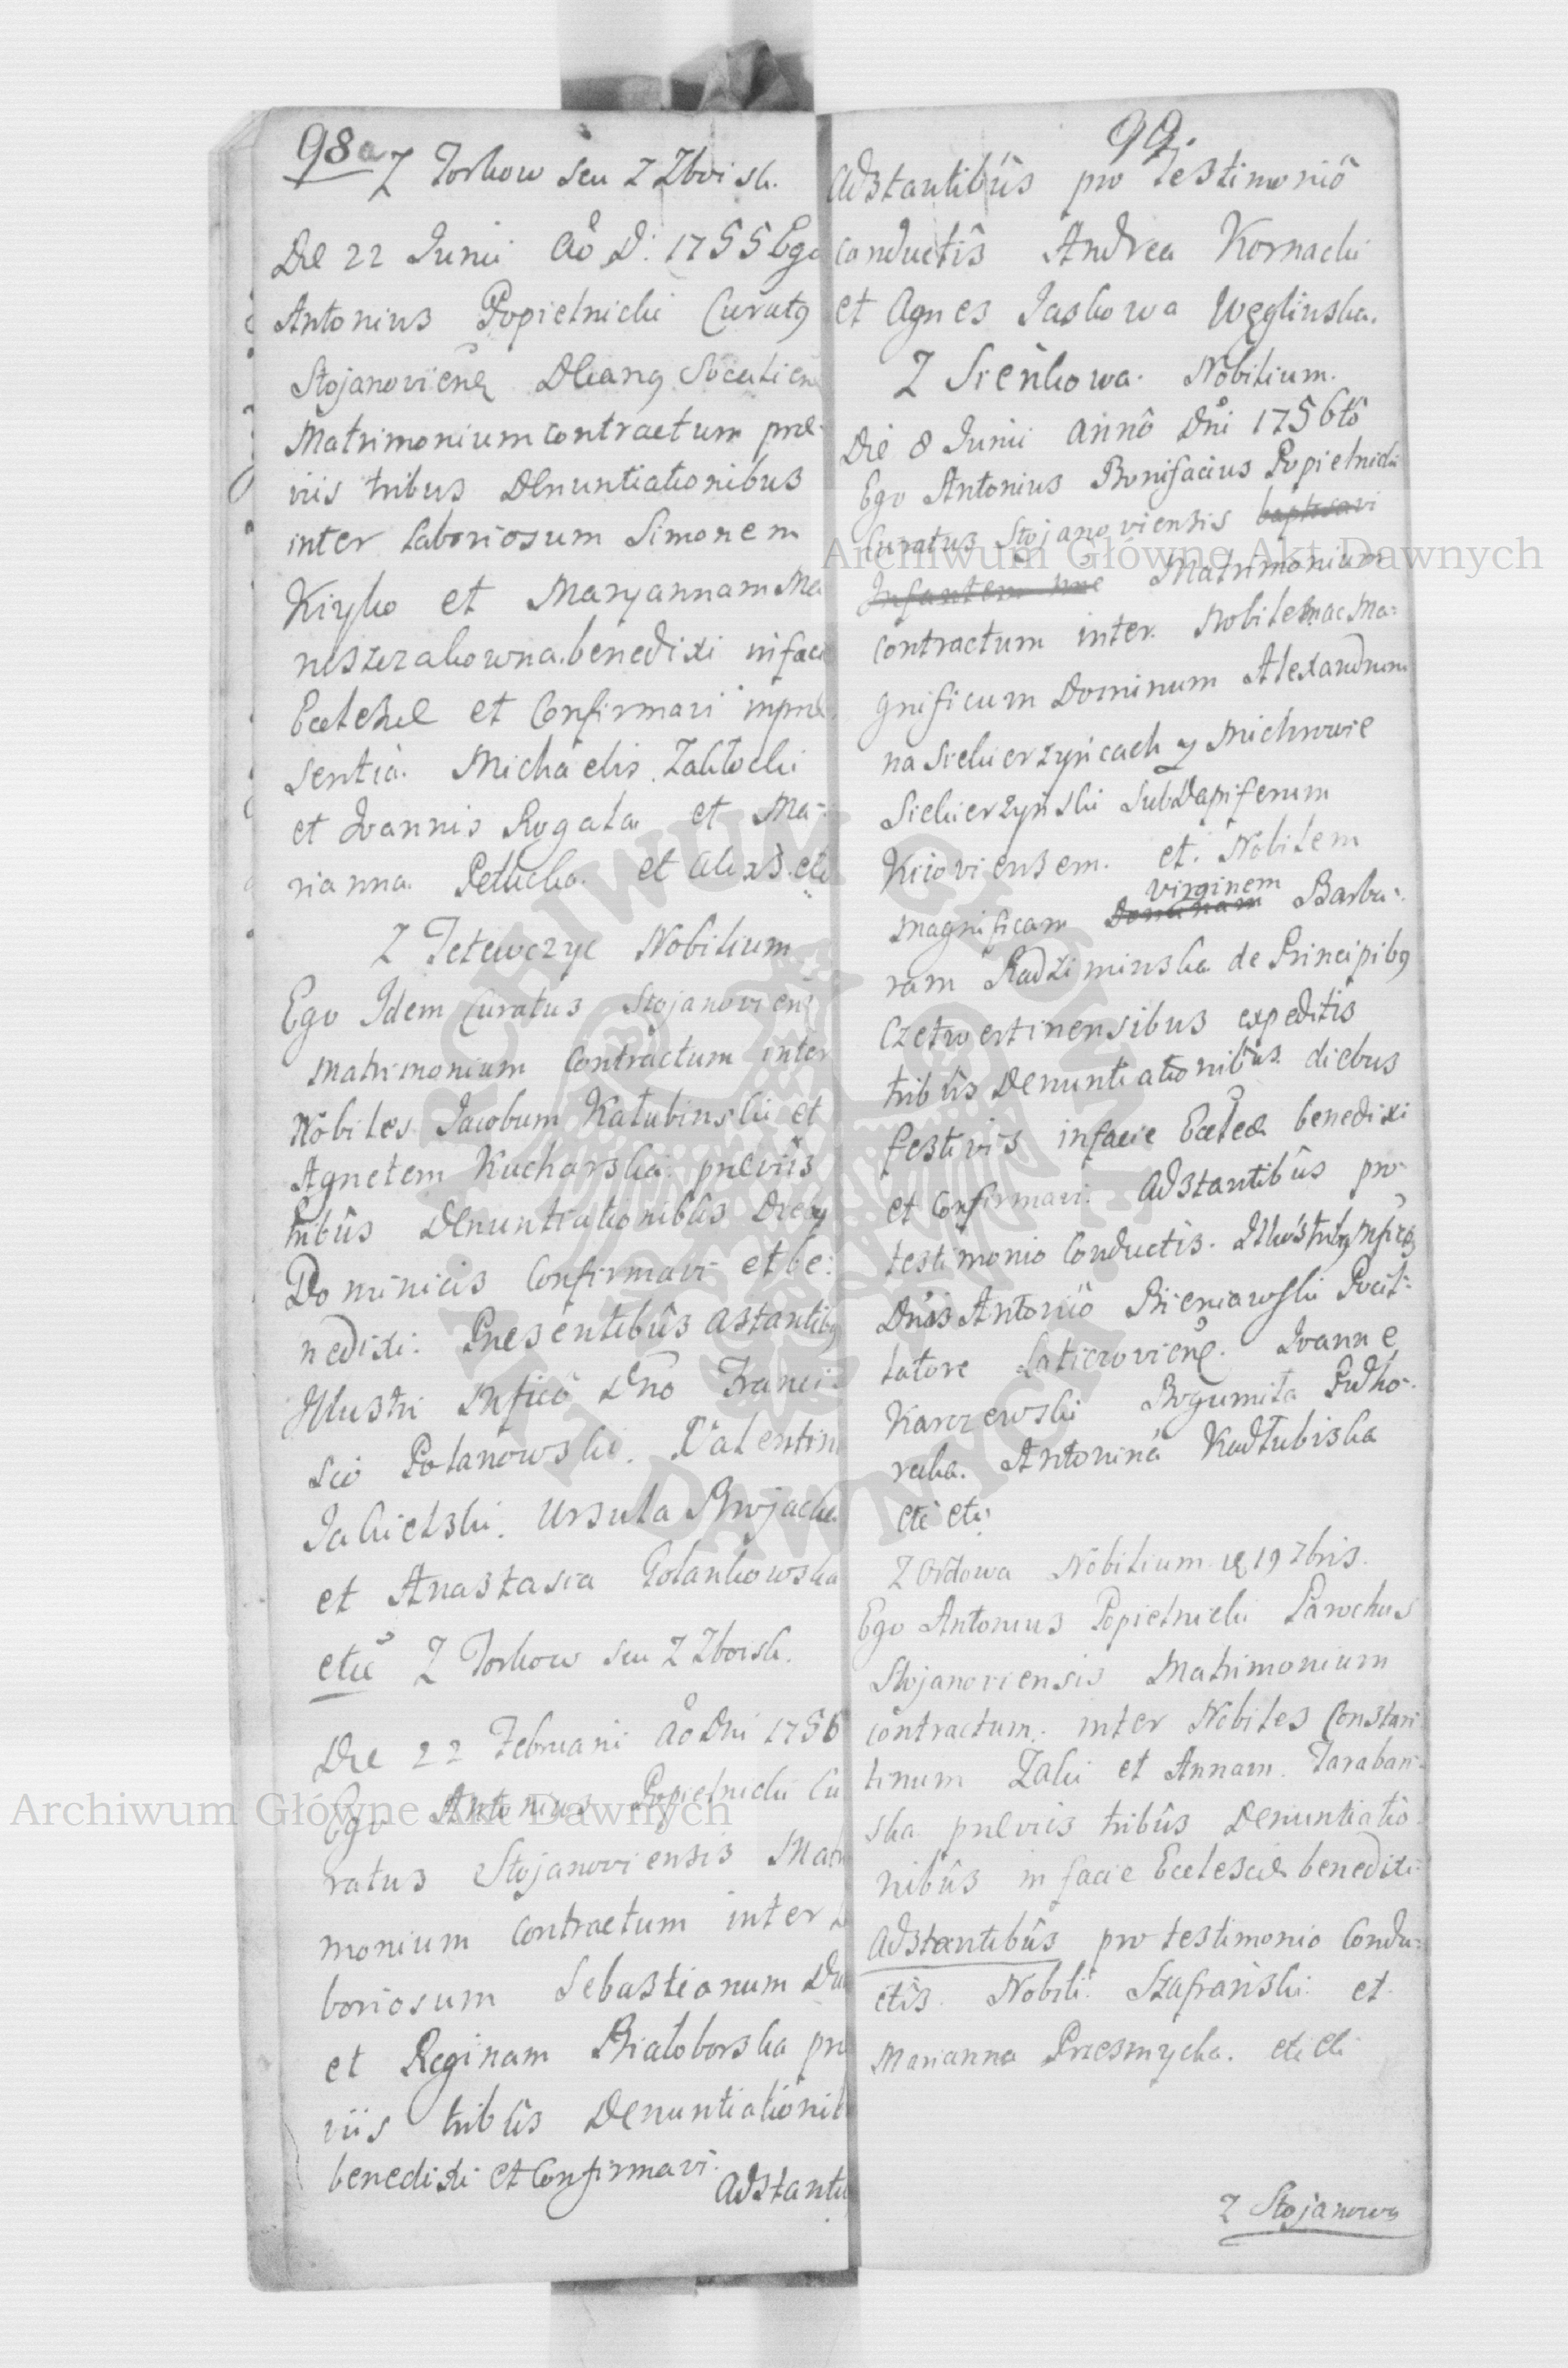 98a
Z Torkow seu Z Zboisk.
Die 22 Junii Ao D: 1755 Ego
Antonius Popielnicki Curatq
Stojanoviens
Matrimonium contractum præ-
viis tribus Denuntiationibus
inter Laboriosum Simonem
Kiyko et Maryannam Ma
benedixi in faci
et Confirmavi in præ
sentia. Michaelis
et Joannis Rogala et Ma-
rianna et
Z Tetewczyc Nobilium
Ego Idem Curatus Stojanoviens
Matrimonium Contractum inter
Nobiles Jacobum Katubinski et
Agnetem Kucharska præviis
tribûs Denuntiationibûs Diebq
Dominicis Confirmavi et be:
nedixi. Presentibûs astantibq
Illustri Mfico Dno Franci
sco Polanowski. Valentin
Jakielski. Ursula
et Anastasia Golankowska
etc Z Torkow seu Z Zboisk.
Die 22 Februarii Ao Dni 1756
Ego Antonius Popielnicki Cu
ratus Stojanoviensis Matri
monium contractum inter La
boriosum Sebastianum
et Reginam Białoborska præ
viis tribûs Denuntiationib
benedixi et Confirmavi.
Adstanti
99.
Adstantibûs pro testimoniô
conductîs Andrea Kornacki
et Agnes Jaskowa Węglinska.
Z Sieńkowa. Nobilium.
Die 8 Junii annô Dni 1756tô
Ego Antonius Bonifacius Popielnicki
Curatus Stojanoviensis baptisavi
Infantem Matrimonium
contractum inter Nobilem ac Ma-
gnificum Dominum Alexandrum
na Siekierzyńcach y Michnowie
Siekierzyński SubDapiferum
Kijoviensem. et Nobilem
virginem
Magnificam Dominam Barba-
ram Radziminska de Principibq
Czetwertinensibus expeditis
tribûs Denuntiationibûs diebus
festivis in facie Ecclæ benedixi
et Confirmavi. Adstantibûs pro
testimonio Conductis.
Dnis Antoniô Bieniawski
Joanne
Karczewski Bogumiła Podho-
recka. Antonina Kadłubiska
etc etc
Z Ordowa Nobilium 19 7bris.
Ego Antonius Popielnicki Parochus
Stojanoviensis Matrimonium
contractum. inter Nobiles Constan
tinum Zaki et Annam. Taraban-
ska præviis tribûs Denuntiatio
nibûs in facie Ecclesiæ benedixi.
Adstantibûs pro testimonio Condu-
ctîs. Nobili Szafrański et
Marianna Przesmycka. etc etc
Z Stojanowa
Archiwum Główne Akt Dawnych
Archiwum Główne Akt Dawnych
ARCHIWUM GŁÓWNE AKT DAWNYCH